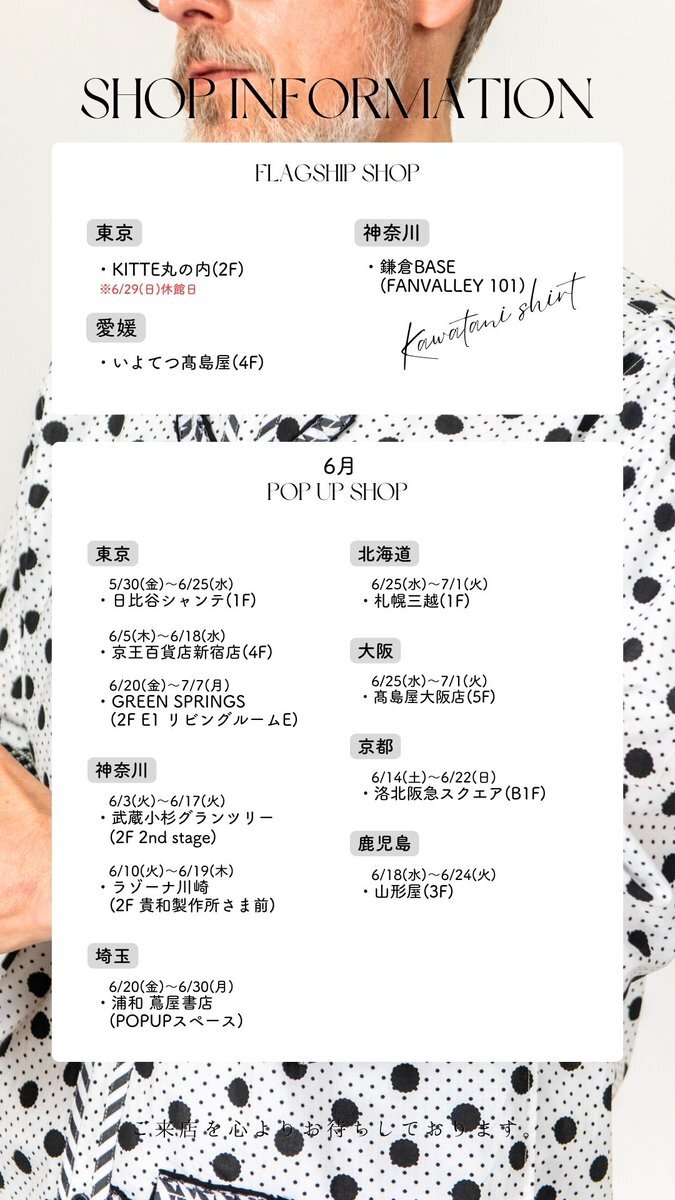 SHOP INFORMATION
FLAGSHIP SHOP
東京
・KITTE丸の内(2F)
※6/29(日)休館日
愛媛
・いよてつ髙島屋(4F)
神奈川
・鎌倉BASE
(FANVALLEY 101)
Kawatani shirt
6月
POP UP SHOP
東京
5/30(金)〜6/25(水)
・日比谷シャンテ(1F)
6/5(木)〜6/18(水)
・京王百貨店新宿店(4F)
6/20(金)〜7/7(月)
・GREEN SPRINGS
(2F E1 リビングルームE)
神奈川
6/3(火)〜6/17(火)
・武蔵小杉グランツリー
(2F 2nd stage)
6/10(火)〜6/19(木)
・ラゾーナ川崎
(2F 貴和製作所さま前)
埼玉
6/20(金)〜6/30(月)
・浦和 蔦屋書店
(POPUPスペース)
北海道
6/25(水)〜7/1(火)
・札幌三越(1F)
大阪
6/25(水)〜7/1(火)
・髙島屋大阪店(5F)
京都
6/14(土)〜6/22(日)
・洛北阪急スクエア(B1F)
鹿児島
6/18(水)〜6/24(火)
・山形屋(3F)
ご来店を心よりお待ちしております。